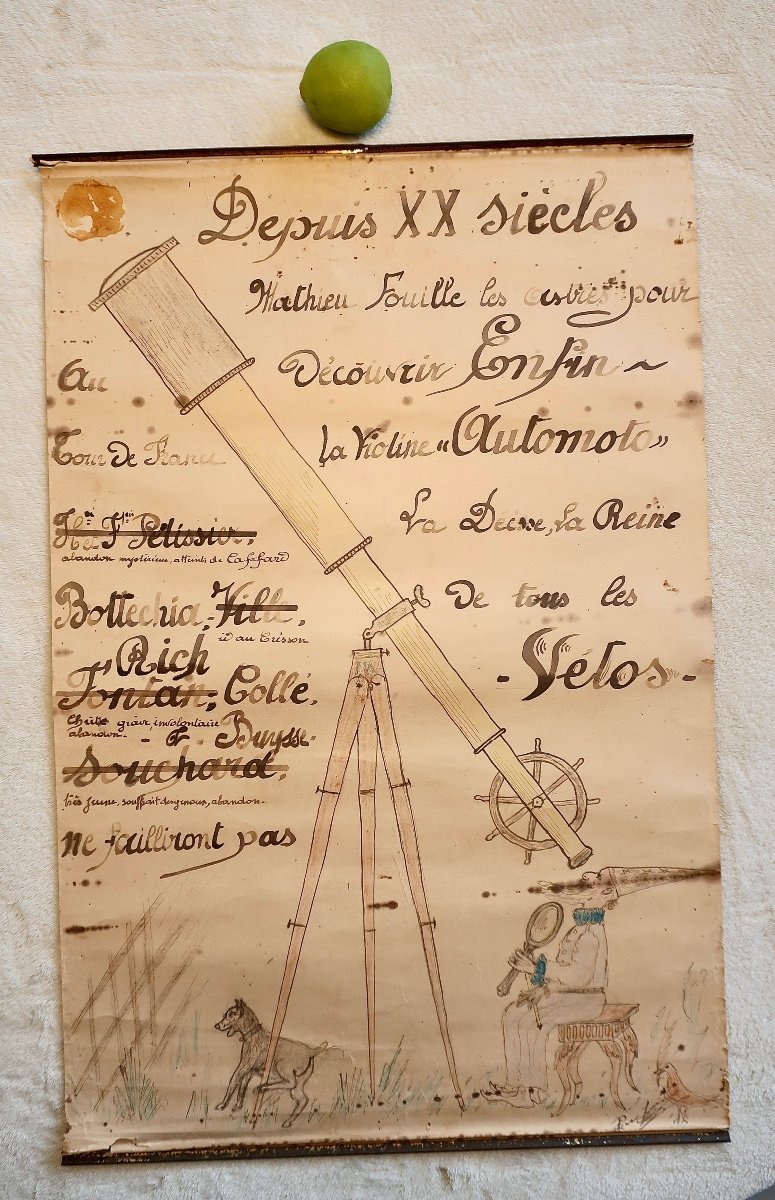 Depuis XX siècles
Mathieu Fouille les astres pour
Découvrir Enfin ~
la Violine "Automoto"
La Déesse, la Reine
De tous les
- Vélos -
Au
Tour De France
H.ri et F.cis Pélissier.
abandon mystérieux, atteints de Caffard
Bottechia, Ville,
id au Crésson
Rich
Fontan, Collé.
chûte grave, involontaire
abandon.
- & - Buysse.
Souchard.
très jeune, souffrait des genoux, abandon.
ne failliront pas